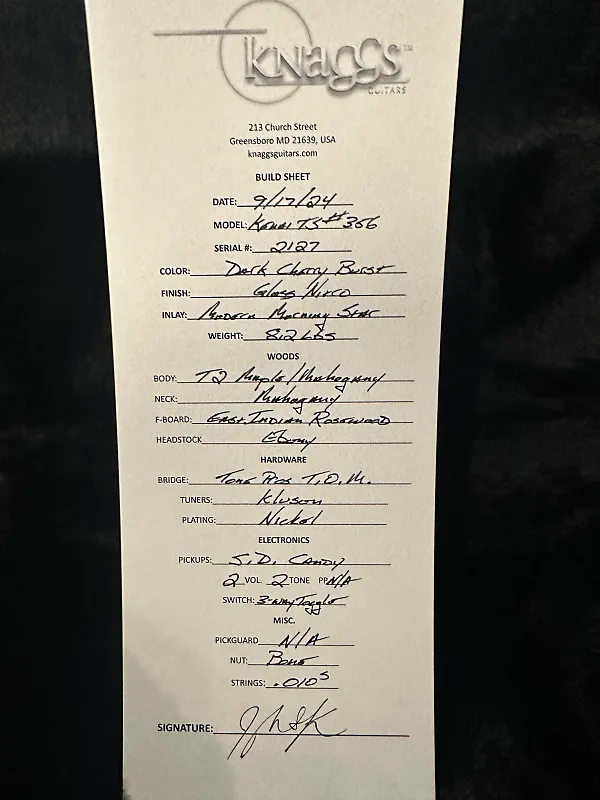 knaggs™
GUITARS
213 Church Street
Greensboro MD 21639, USA
knaggsguitars.com
BUILD SHEET
DATE: 9/17/24
MODEL: Kenai TS #356
SERIAL #: 2127
COLOR: Dark Cherry Burst
FINISH: Gloss Nitro
INLAY: Modern Morning Star
WEIGHT: 8.2 Lbs
WOODS
BODY: T2 Maple/Mahogany
NECK: Mahogany
F-BOARD: East Indian Rosewood
HEADSTOCK Ebony
HARDWARE
BRIDGE: Tone Pros T.O.M.
TUNERS: Kluson
PLATING: Nickel
ELECTRONICS
PICKUPS: S.D. Candy
2 VOL. 2 TONE PP N/A
SWITCH: 3-way Toggle
MISC.
PICKGUARD N/A
NUT: Bone
STRINGS: .010s
SIGNATURE: